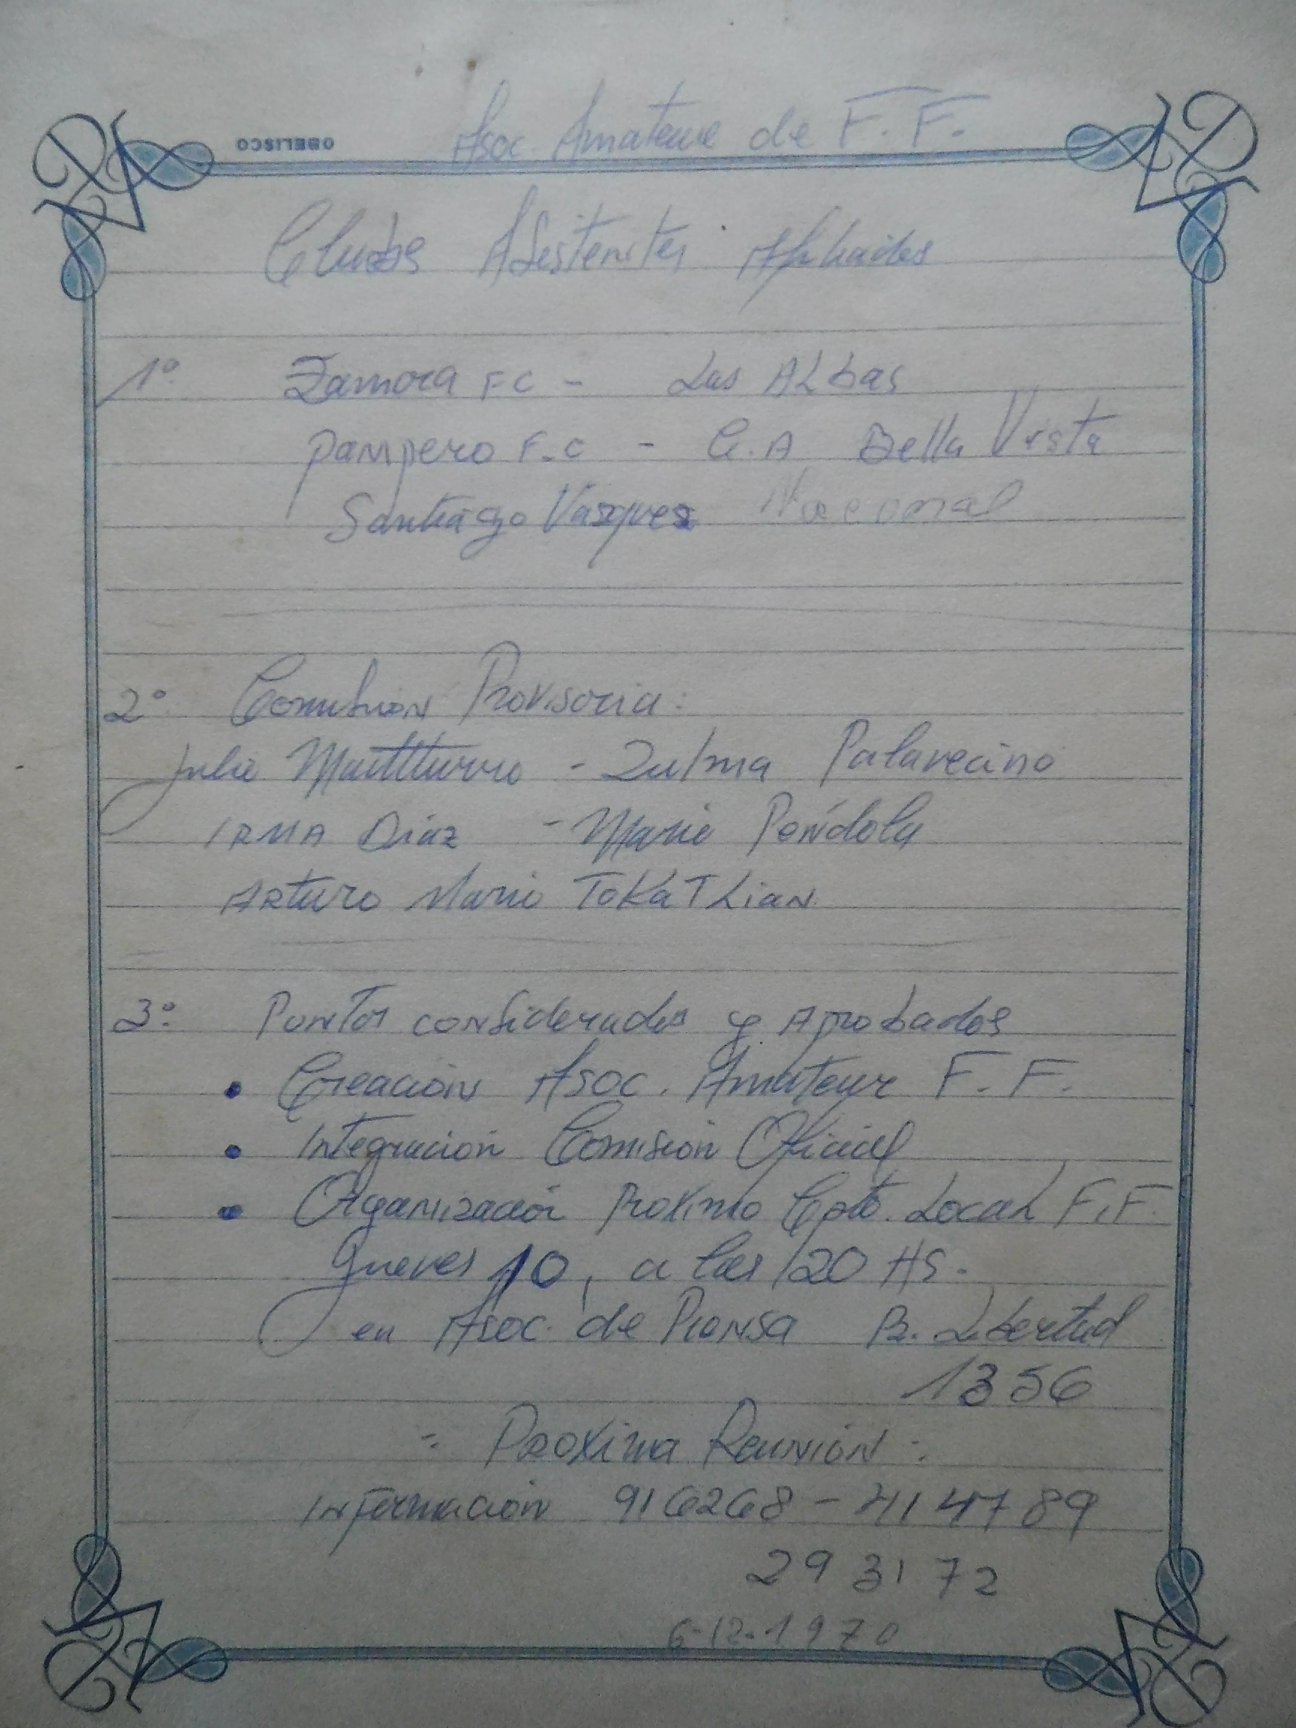 OBELISCO
Asoc. Amateur de F. F.
Clubs Asistentes Afiliados
1º Zamora FC - Las Albas
Pampero F.C - C.A Bella Vista
Santiago Vasquez Nacional
2º Comisión Provisoria:
Julio - Zulma Palavecino
IRMA Diaz - Mario Péndola
Arturo Mario TOKATLIAN
3º Puntos considerados y Aprobados
• Creación Asoc. Amateur F. F.
• Integración Comisión Oficial
• Organización Proximo Cpto. Local F.F.
Jueves 10, a las 20 HS.
en Asoc. de Prensa B. Libertad
1356
= Proxima Reunión =
Información 916268 - 414789
293172
6-12-1970